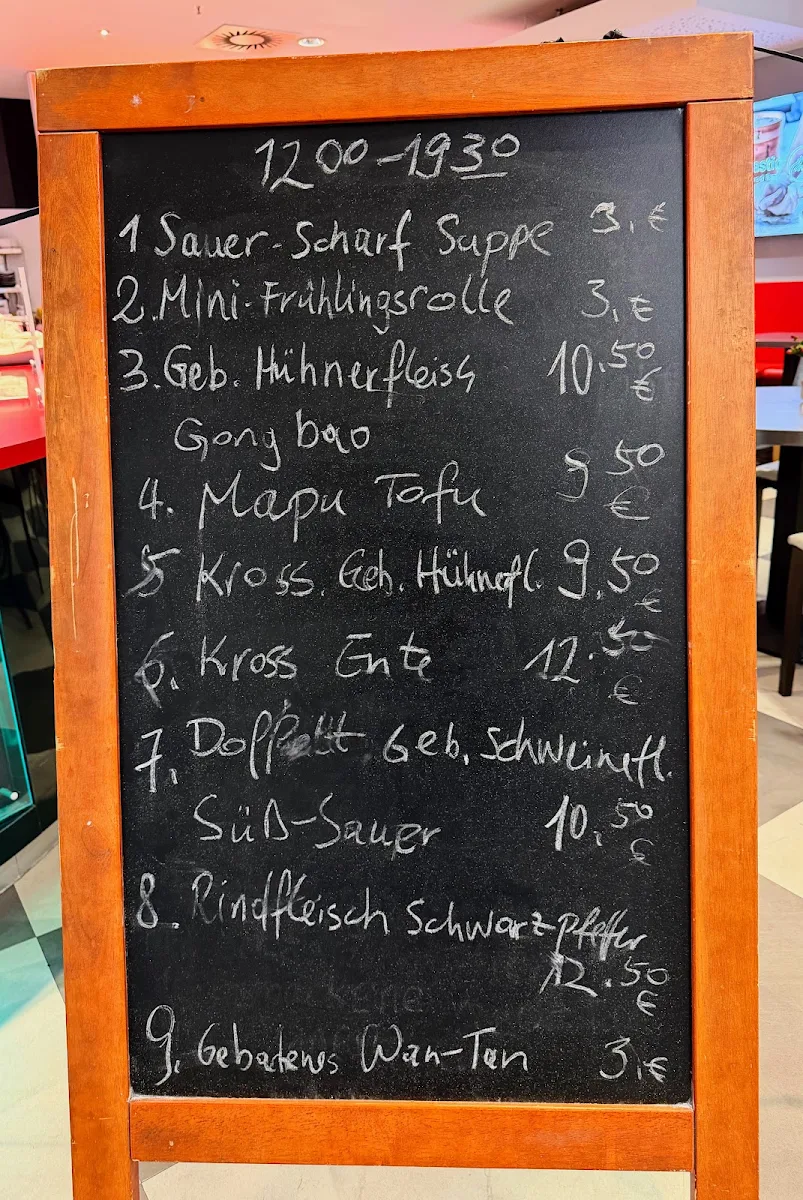 12 00 - 19 30
1 Sauer-Scharf Suppe 3,€
2. Mini-Frühlingsrolle 3,€
3. Geb. Hühnerfleisch 10.50 €
Gong bao
4. Mapu Tofu 9 50 €
5 Kross. Geb. Hühnerfl. 9.50 €
6. Kross Ente 12.50 €
7. Doppelt Geb. Schweinefl.
Süß-Sauer 10.50 €
8. Rindfleisch Schwarzpfeffer
12.50 €
9. Gebatenes Wan-Tan 3,€